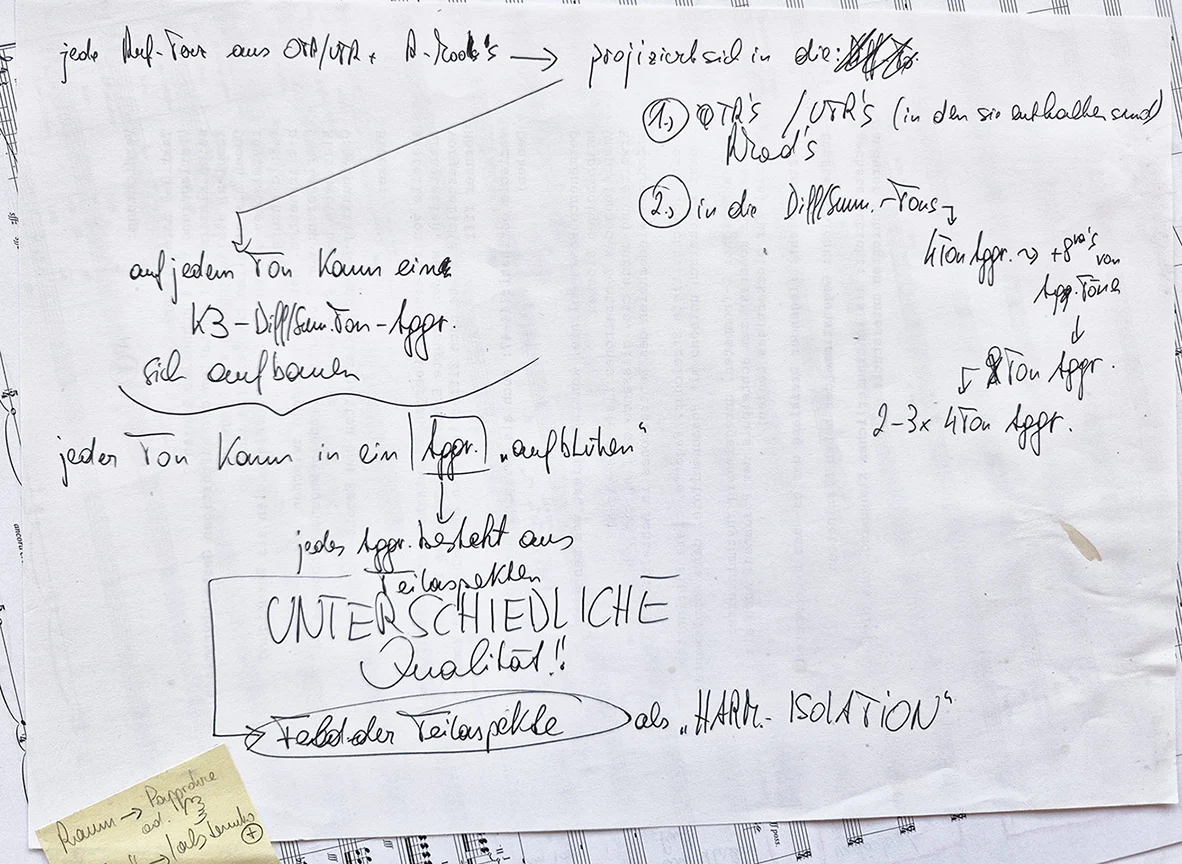 jede Ref-Tour aus OTR/UTR + R-Mod's → projiziert sich in die:
1.) OTR's / UTR's (in den sie enthalten sind)
RMod's
2.) in die Diff/Sum.-Tons
4Ton Aggr. → +8va's von
Agg. Töne
8Ton Aggr.
2-3x 4Ton Aggr.
auf jedem Ton kann eine
K3-Diff/Sum.Ton-Aggr.
sich aufbauen
jeder Ton kann in ein Aggr. „aufblühen"
jedes Aggr. besteht aus
Teilaspekten
UNTERSCHIEDLICHE
Qualität!!
Feld der Teilaspekte als „HARM.- ISOLATION"
Raum →
ad.
→ als
ancora